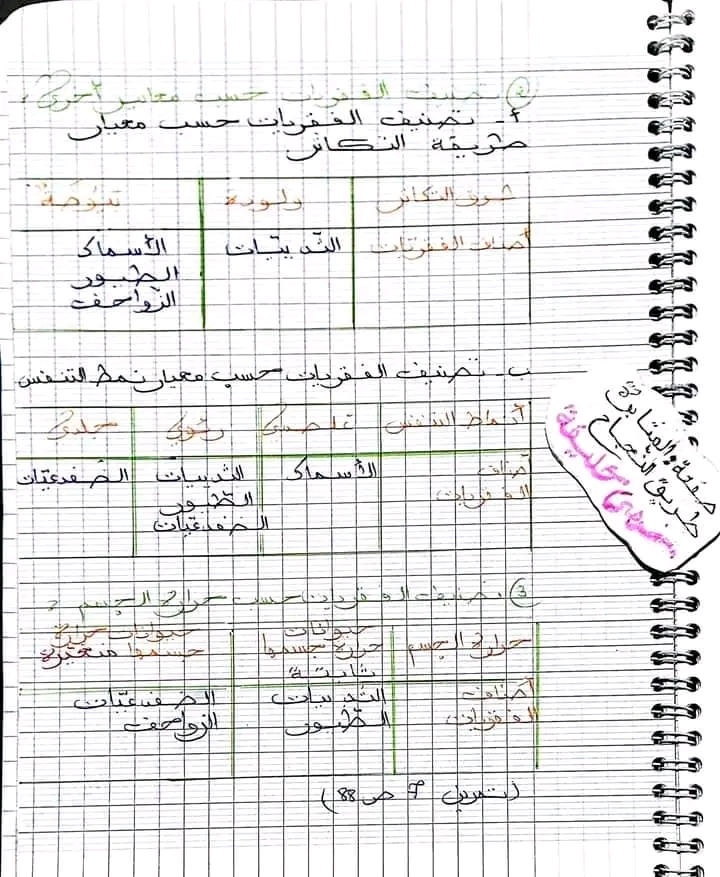 ② تصنيف الفقريات حسب معايير أخرى :
أ- تصنيف الفقريات حسب معيار
طريقة التكاثر
طرق التكاثر ولودية بيوضة
أصناف الفقريات الثدييات الأسماك
الطيور
الزواحف
ب- تصنيف الفقريات حسب معيار نمط التنفس
أنماط التنفس غلصمي رئوي جلدي
أصناف الفقريات الأسماك الثدييات الضفدعيات
الطيور
الضفدعيات
③. تصنيف الفقريات حسب حرارة الجسم :
حرارة الجسم حيوانات حرارة جسمها ثابتة حيوانات حرارة جسمها متغيرة
أصناف الفقريات الثدييات الضفدعيات
الطيور الزواحف
(تمرين 7 ص 88)
طريق النجاح